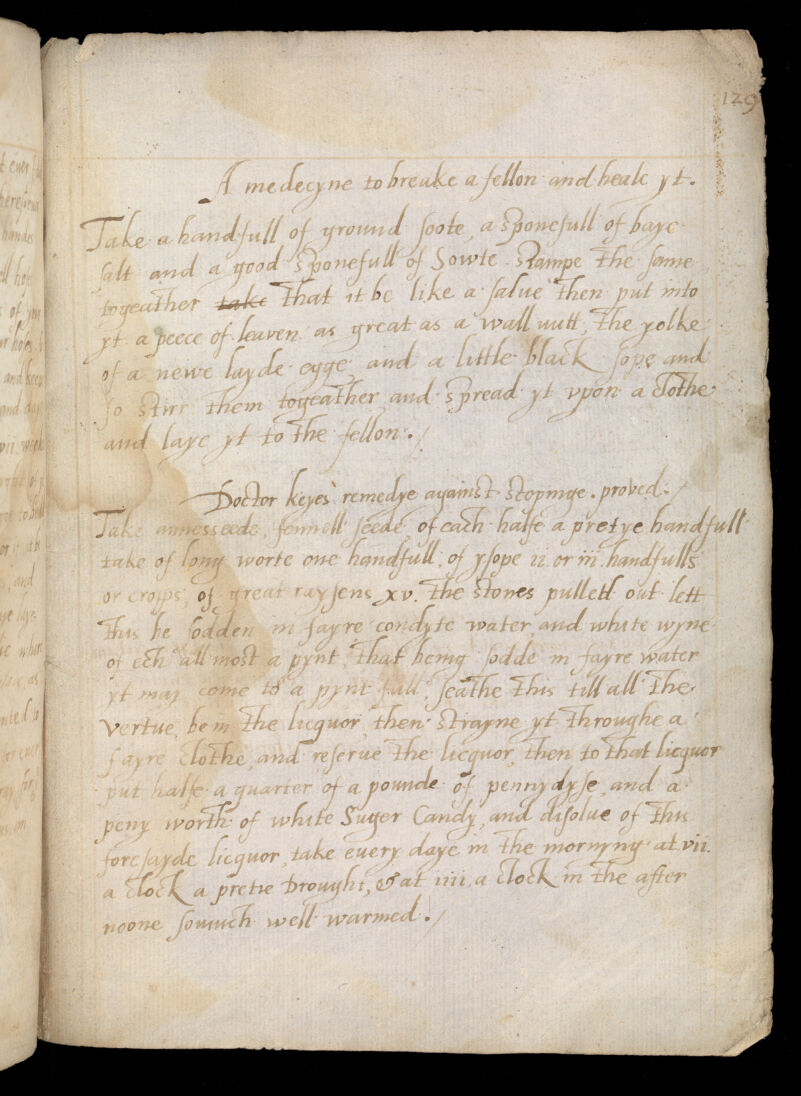 129
A medecyne to breake a fellon and heale yt.
Take a handfull of ground soote, a sponefull of baye
salt and a good sponefull of Sowte Stampe the same
togeather take that it be like a salue then put into
yt a peece of leaven as great as a wall nutt, the yolke
of a newe layde egge, and a little black sope and
so stirr them togeather and spread yt vpon a clothe
and laye yt to the fellon./
Doctor keyes remedye against stopinge. proved./
Take annesseede, fennell seede of each halfe a pretye handfull
take of long worte one handfull, of ysope ii. or iii. handfulls
or cropps, of great raysens xv. the stones pulled out lett
this be sodden in fayre condyte water, and white wyne
of ech all most a pynt, that being sodde in fayre water
yt may come to a pynt full, seathe this till all the
vertue, be in the licquor, then strayne yt throughe a
fayre clothe, and reserve the licquor, then to that licquor
put halfe a quarter of a pounde of pennydyse, and a
peny worth of white Suger Candy, and disolue of this
foresayde licquor, take euery daye in the mornyng at vii.
a clock a pretie Drought, & at iiii. a clock in the after
noone somuch well warmed./